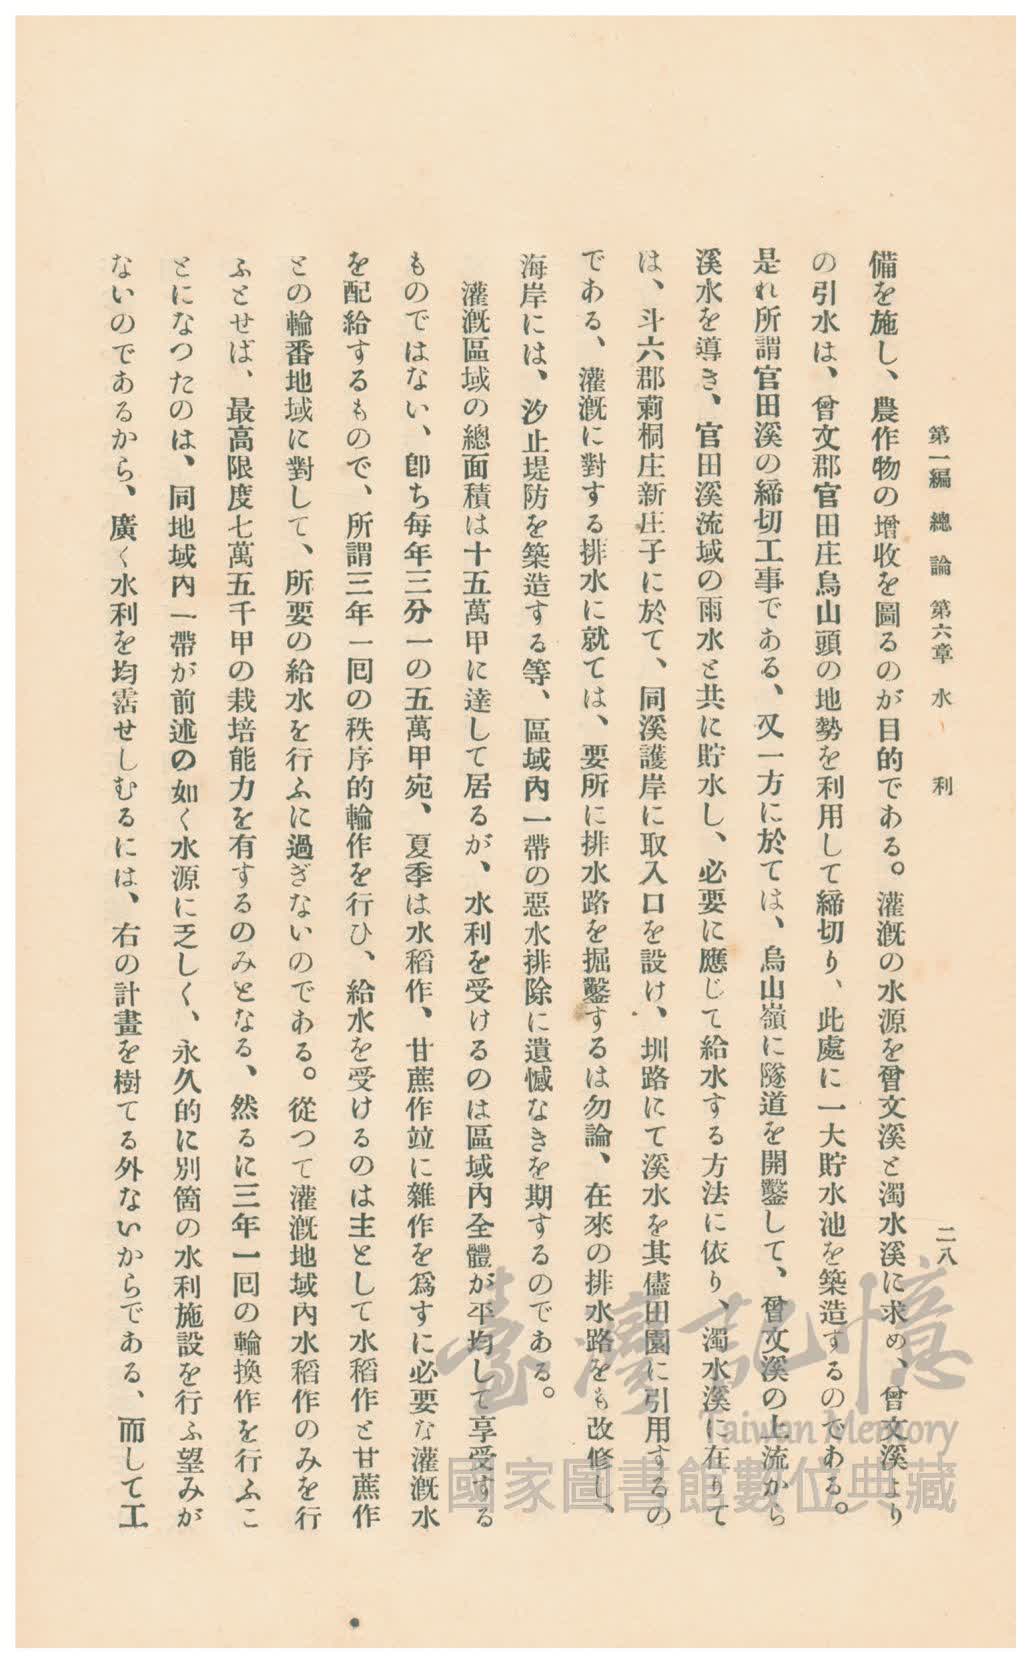 第一編 總論 第六章 水利
二八
備を施し、農作物の增收を圖るのが目的である。灌漑の水源を曾文溪と濁水溪に求め、曾文溪より
の引水は、曾文郡官田庄烏山頭の地勢を利用して締切り、此處に一大貯水池を築造するのである。
是れ所謂官田溪の締切工事である、又一方に於ては、烏山嶺に隧道を開鑿して、曾文溪の上流から
溪水を導き、官田溪流域の雨水と共に貯水し、必要に應じて給水する方法に依り、濁水溪に在りて
は、斗六郡莿桐庄新庄子に於て、同溪護岸に取入口を設け、圳路にて溪水を其儘田園に引用するの
である、灌漑に對する排水に就ては、要所に排水路を掘鑿するは勿論、在來の排水路をも改修し、
海岸には、汐止堤防を築造する等、區域內一帶の惡水排除に遺憾なきを期するのである。
灌漑區域の總面積は十五萬甲に達して居るが、水利を受けるのは區域內全體が平均して享受する
ものではない、卽ち每年三分一の五萬甲宛、夏季は水稻作、甘蔗作竝に雜作を爲すに必要な灌漑水
を配給するもので、所謂三年一回の秩序的輪作を行ひ、給水を受けるのは主として水稻作と甘蔗作
との輪番地域に對して、所要の給水を行ふに過ぎないのである。從つて灌漑地域內水稻作のみを行
ふとせば、最高限度七萬五千甲の栽培能力を有するのみとなる、然るに三年一回の輪換作を行ふこ
とになつたのは、同地域內一帶が前述の如く水源に乏しく、永久的に別箇の水利施設を行ふ望みが
ないのであるから、廣く水利を均霑せしむるには、右の計畫を樹てる外ないからである、而して工
臺灣記憶
Taiwan Memory
國家圖書館數位典藏